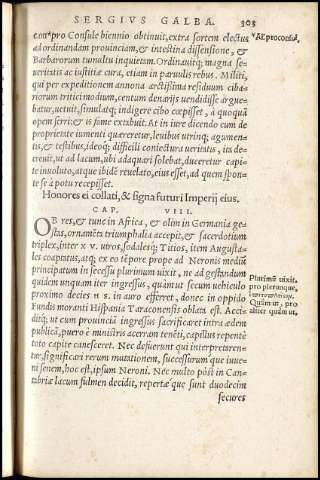 SERGIVS GALBA. 303
con*pro Consule biennio obtinuit, extra sortem electus
ad ordinandam prouinciam, & intestina dissensione, &
Barbarorum tumultu inquietum. Ordinauitq; magna se-
ueritatis ac iustitiæ cura, etiam in paruulis rebus. Militi,
qui per expeditionem annona arctissima residuum ciba-
riorum tritici modium, centum denarijs uendidisse argue-
batur, uetuit, simulatq; indigere cibo cœpisset, à quoquã
opem ferri: & is fame extabuit. At in iure dicendo cum de
proprietate iumenti quæreretur, leuibus utrinq; argumen-
tis, & testibus, ideoq́; difficili coniectura ueritatis, ita de-
creuit, ut ad lacum, ubi adaquari solebat, duceretur capi-
te inuoluto, atque ibidẽ reuelato, eius esset, ad quem spon-
te se à potu recepisset.
Honores ei collati, & signa futuri Imperij eius.
CAP. VIII.
OB res, & tunc in Africa, & olim in Germania ge-
stas, ornamẽta triumphalia accepit, & sacerdotium
triplex, inter x v. uiros, sodalesq́; Titios, item Augusta-
les cooptatus, atq; ex eo tẽpore prope ad Neronis mediũ
principatum in secessu plurimum uixit, ne ad gestandum
quidem unquam iter ingressus, quàm ut secum uehiculo
proximo decies H S. in auro efferret, donec in oppido
Fundis moranti Hispania Taraconensis oblata est. Acci-
ditq́; ut cum prouinciã ingressus sacrificaret intra ædem
publicã, puero è ministris acerram tenẽti, capillus repentè
toto capite canesceret. Nec defuerunt qui interpretaren-
tur, significari rerum mutationem, successurum´que iuue-
ni senem, hoc est, ipsum Neroni. Nec multo pòst in Can-
tabriæ lacum fulmen decidit, repertæ´que sunt duodecim
secures
*Al. proconsul.
Plurimũ uixit,
pro plerunque,
Quàm ut, pro
aliter quàm ut,